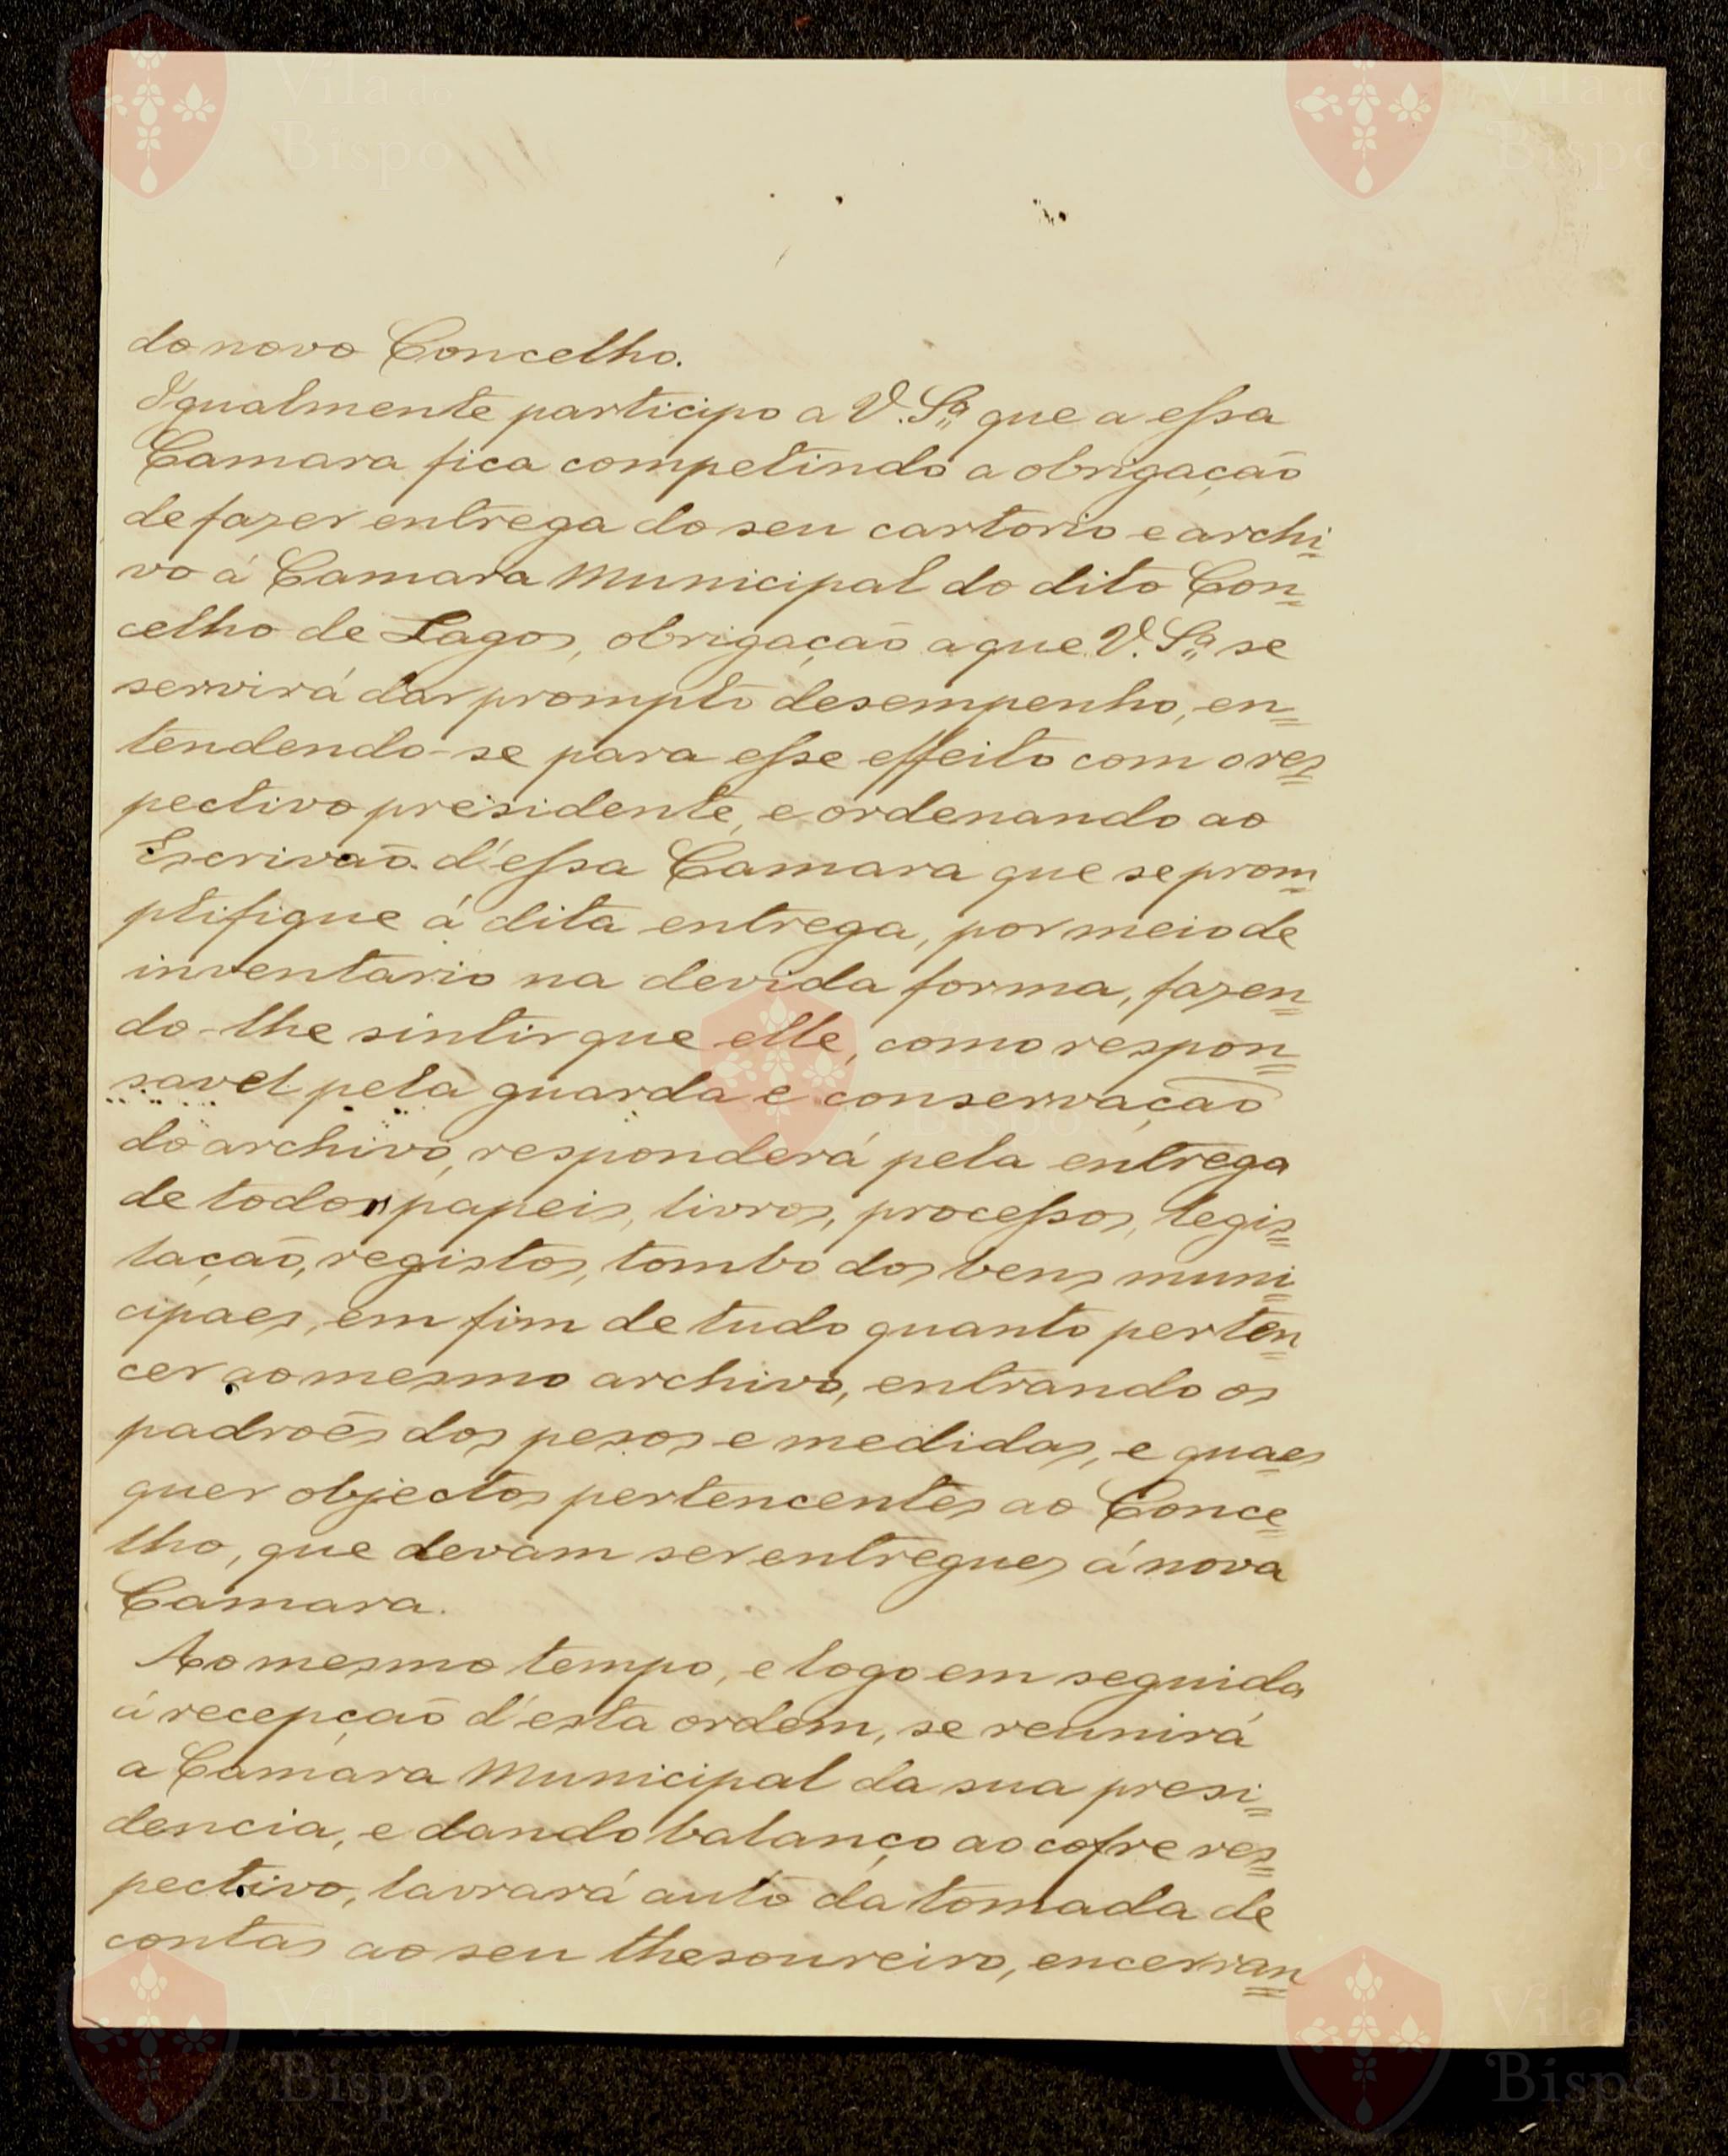 Vila do
Bispo
Vila do
Bispo
do novo Concelho.
Igualmente participo a V. Sª que a essa
Camara fica competindo a obrigação
de fazer entrega do seu cartorio e archi=
vo á Camara Municipal do dito Con=
celho de Lagos, obrigação a que V. Sª se
servirá dar prompto desempenho, en=
tendendo-se para esse effeito com o res=
pectivo presidente, e ordenando ao
Escrivão d'essa Camara que se prom=
ptifique á dita entrega, por meio de
inventario na devida forma, fazen=
do-lhe sintir que elle, como respon=
savel pela guarda e conservação
do archivo, responderá pela entrega
de todos papeis, livros, processos, legis=
lação, registos, tombo dos bens muni=
cipaes, em fim de tudo quanto perten=
cer ao mesmo archivo, entrando os
padroẽs dos pesos e medidas, e quaes=
quer objectos pertencentes ao Conce=
lho, que devam ser entregues á nova
Camara.
Ao mesmo tempo, e logo em seguida
á recepção d'esta ordem, se reunirá
a Camara Municipal da sua presi=
dencia, e dando balanço ao cofre res=
pectivo, lavrará auto da tomada de
contas ao seu thesoureiro, encerran=
Vila do
Bispo
Vila do
Bispo
Vila do
Bispo